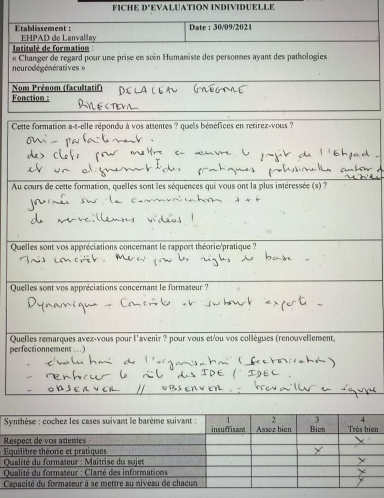 FICHE D'EVALUATION INDIVIDUELLE
Etablissement :
EHPAD de Lanvallay
Date : 30/09/2021
Intitulé de formation :
« Changer de regard pour une prise en soin Humaniste des personnes ayant des pathologies
neurodégénératives »
Nom Prénom (facultatif)
Fonction :
DIRECTEUR
Cette formation a-t-elle répondu à vos attentes ? quels bénéfices en retirez-vous ?
oui - parfaitement.
des clefs pour mettre en œuvre le projet de l'Ehpad -
et un alignement des pratiques professionnelles autour du
Au cours de cette formation, quelles sont les séquences qui vous ont la plus intéressée (s) ?
journée sur la communication +++
de merveilleuses vidéos !
Quelles sont vos appréciations concernant le rapport théorie/pratique ?
Très concret. Merci pour les règles de base -
Quelles sont vos appréciations concernant le formateur ?
Dynamique - Concrète et surtout experte -
Quelles remarques avez-vous pour l'avenir ? pour vous et/ou vos collègues (renouvellement,
perfectionnement ...)
- évolution de l'organisation (sectorisation)
- renforcer le rôle des IDE / IDEC
- OBSERVER // OBSERVER - travailler en équipe
Synthèse : cochez les cases suivant le barème suivant :
1
insuffisant
2
Assez bien
3
Bien
4
Très bien
Respect de vos attentes X
Equilibre théorie et pratiques X
Qualité du formateur : Maitrise du sujet X
Qualité du formateur : Clarté des informations X
Capacité du formateur à se mettre au niveau de chacun X